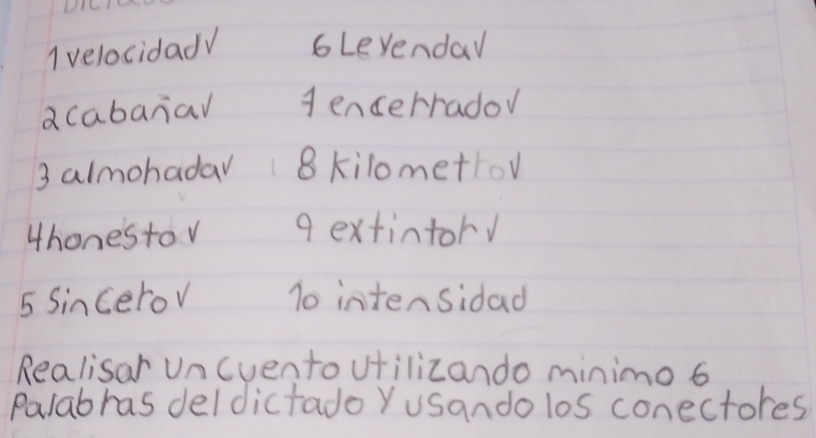 1 velocidad √ 6 Leyenda √
2 cabaña √ 7 encerrado √
3 almohada √ 8 kilometro √
4 honesto √ 9 extintor √
5 sincero √ 10 intensidad
Realisar un cuento utilizando minimo 6
Palabras del dictado y usando los conectores